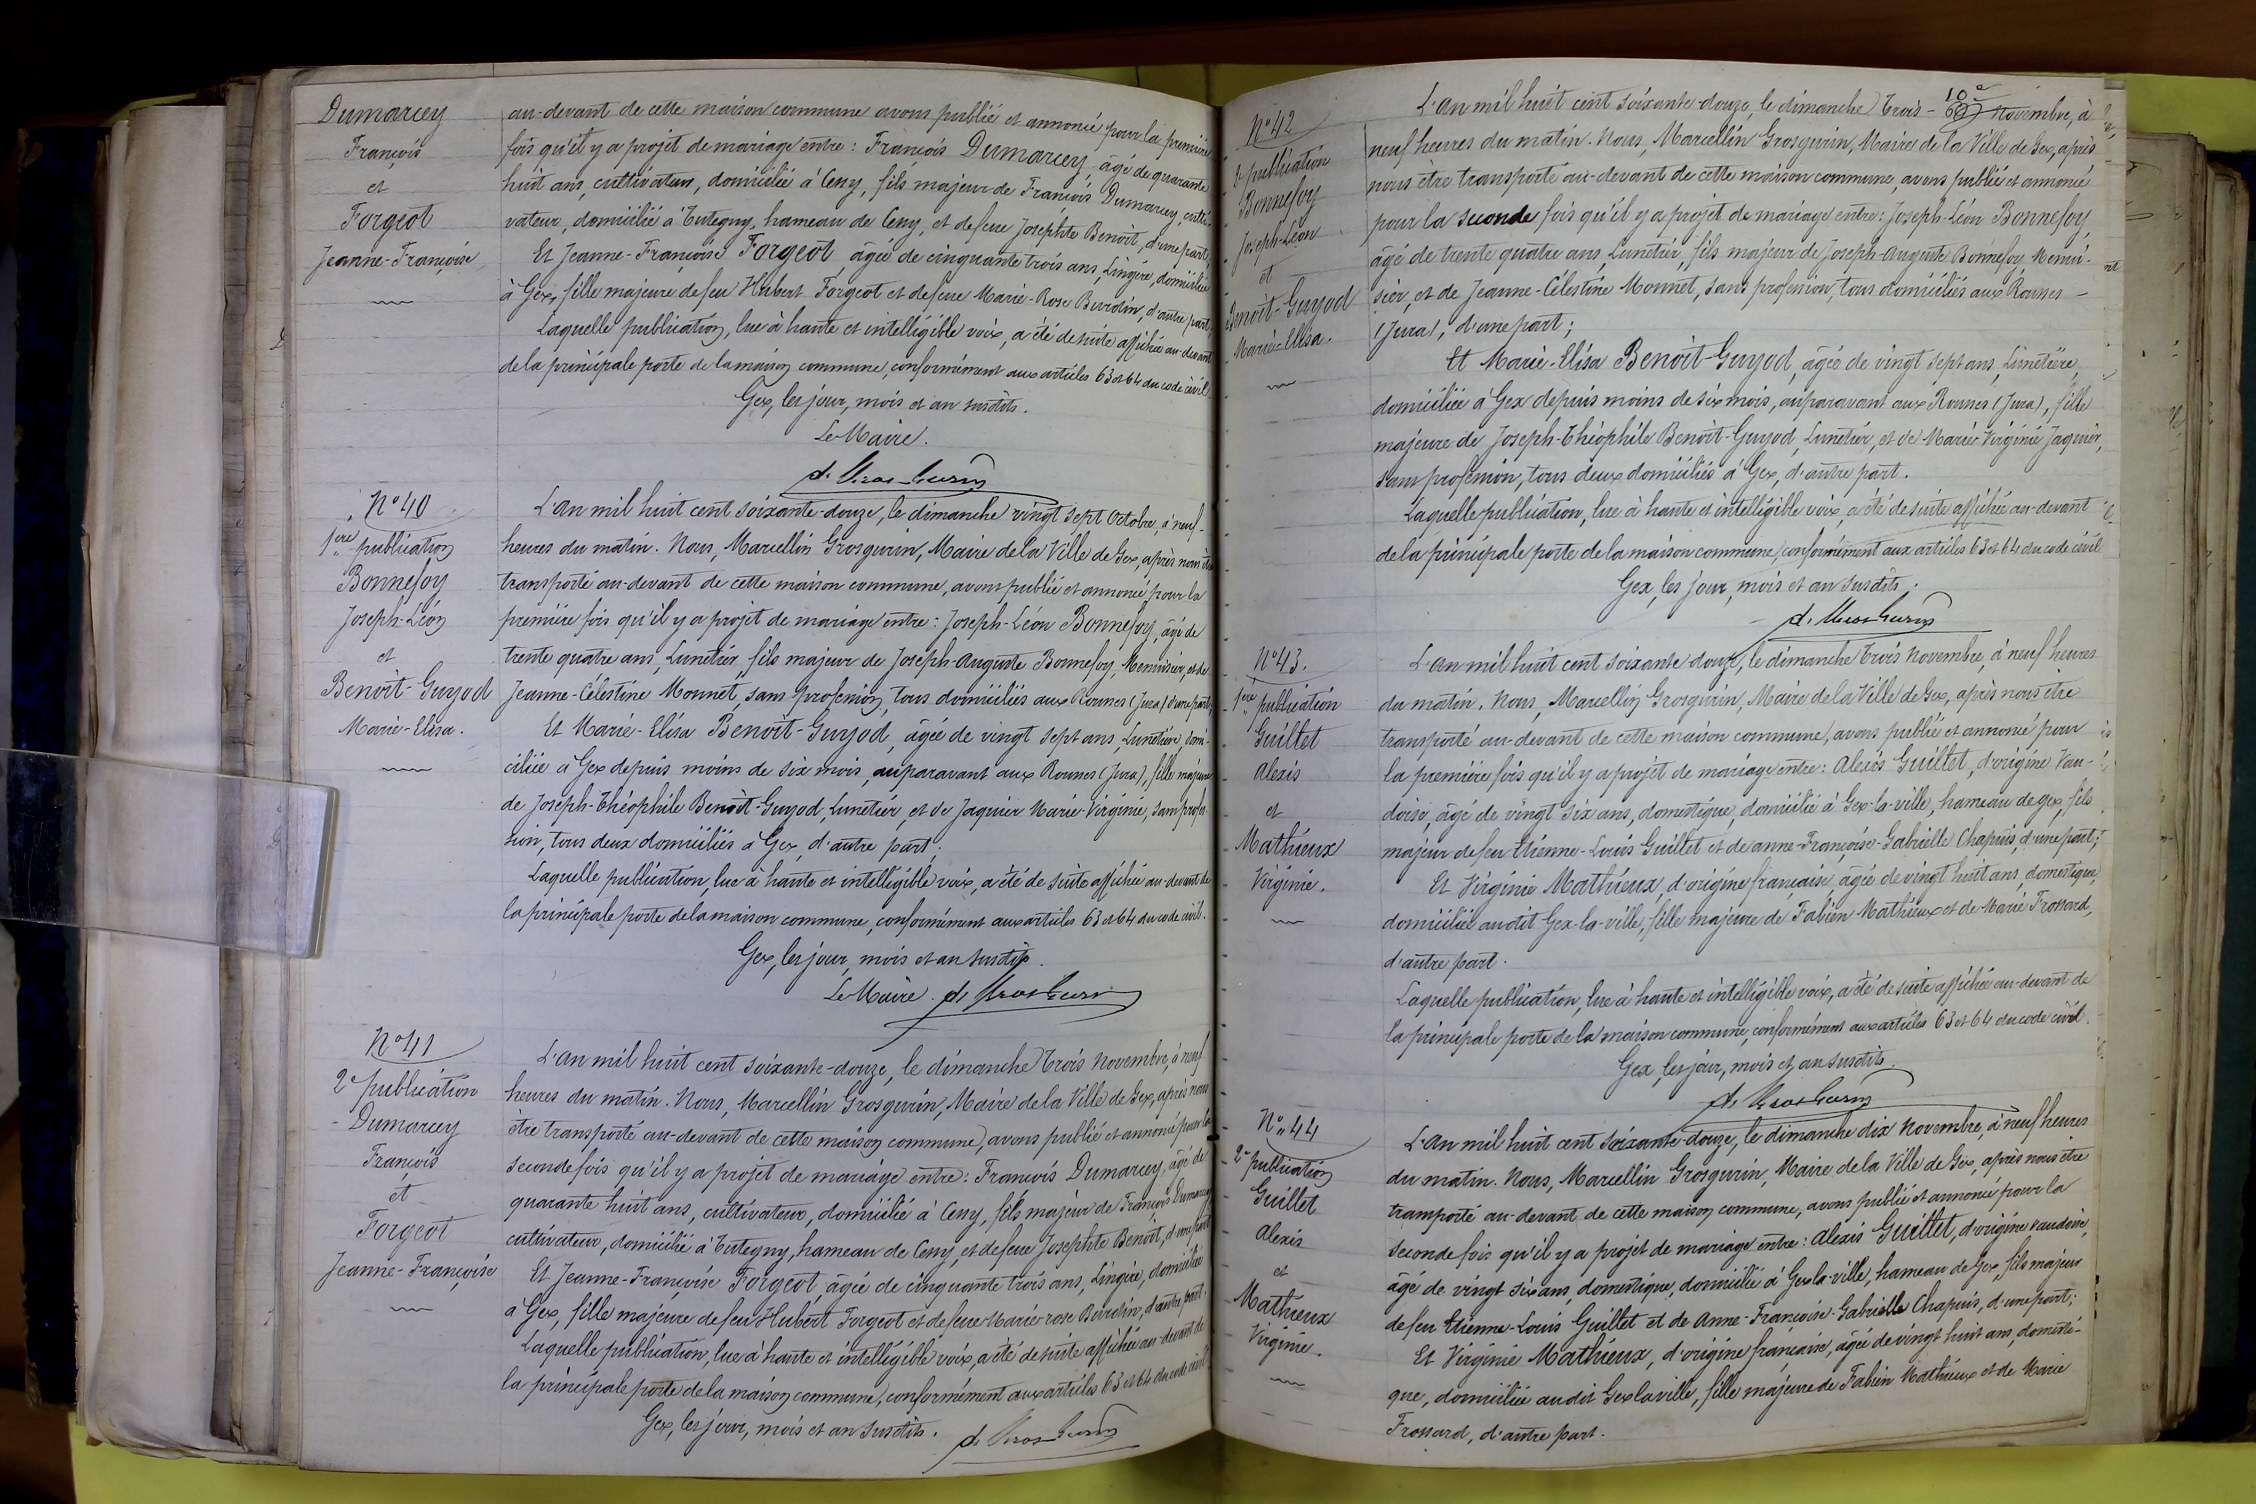 Dumarcey
François
et
Forgeot
Jeanne-Françoise
au-devant de cette maison commune avons publié et annoncé pour la première
fois qu'il y a projet de mariage entre : François Dumarcey, âgé de quarante
huit ans, cultivateur, domicilié à Cessy, fils majeur de François Dumarcey, culti-
vateur, domicilié à Tutegny, hameau de Cessy, et de feue Josephte Benoît, d'une part;
Et Jeanne-Françoise Forgeot, âgée de cinquante trois ans, Lingère, domiciliée
à Gex, fille majeure de feu Hubert Forgeot et de feue Marie-Rose Burdin, d'autre part,
Laquelle publication, lue à haute et intelligible voix, a été de suite affichée au-devant
de la principale porte de la maison commune, conformément aux articles 63 et 64 du code civil
Gex, les jour, mois et an susdits.
Le Maire.
N° 40
1ère publication
Bonnefoy
Joseph-Léon
et
Benoit-Guyod
Marie-Elisa.
L'an mil huit cent soixante-douze, le dimanche vingt sept Octobre, à neuf-
heures du matin. Nous, Marcellin Grosgurin, Maire de la Ville de Gex, après nous être
transporté au-devant de cette maison commune, avons publié et annoncé pour la
première fois qu'il y a projet de mariage entre : Joseph-Léon Bonnefoy, âgé de
trente quatre ans, Lunetier, fils majeur de Joseph-Auguste Bonnefoy, Menuisier, et de
Jeanne-Célestine Monnet, sans profession, tous domiciliés aux Rousses (Jura) d'une part;
Et Marie-Elisa Benoit-Guyod, âgée de vingt sept ans, Lunetière, domi-
ciliée à Gex depuis moins de six mois, auparavant aux Rousses (Jura), fille majeure
de Joseph-Théophile Benoit-Guyod, Lunetier, et de Jaquier Marie-Virginie, sans profes-
sion, tous deux domiciliés à Gex, d'autre part.
Laquelle publication, lue à haute et intelligible voix, a été de suite affichée au-devant de
la principale porte de la maison commune, conformément aux articles 63 et 64 du code civil.
Gex, les jour, mois et an susdits.
Le Maire.
N° 41
2e publication
Dumarcey
François
et
Forgeot
Jeanne-Françoise
L'an mil huit cent soixante-douze, le dimanche trois Novembre, à neuf
heures du matin. Nous, Marcellin Grosgurin, Maire de la Ville de Gex, après nous
être transporté au-devant de cette maison commune, avons publié et annoncé pour la
seconde fois qu'il y a projet de mariage entre : François Dumarcey, âgé de
quarante huit ans, cultivateur, domicilié à Cessy, fils majeur de François Dumarcey
cultivateur, domicilié à Tutegny, hameau de Cessy, et de feue Josephte Benoît, d'une part
Et Jeanne-Françoise Forgeot, âgée de cinquante trois ans, Lingère, domiciliée
à Gex, fille majeure de feu Hubert Forgeot et de feue Marie-rose Burdin, d'autre part.
Laquelle publication, lue à haute et intelligible voix, a été de suite affichée au-devant de
la principale porte de la maison commune, conformément aux articles 63 et 64 du code civil
Gex, les jour, mois et an susdits.
N° 42
2e publication
Bonnefoy
Joseph-Léon
et
Benoit-Guyod
Marie-Elisa.
10e
L'an mil huit cent soixante-douze, le dimanche trois - Novembre, à
neuf heures du matin. Nous, Marcellin Grosgurin, Maire de la Ville de Gex, après
nous être transporté au-devant de cette maison commune, avons publié et annoncé
pour la seconde fois qu'il y a projet de mariage entre : Joseph-Léon Bonnefoy,
âgé de trente quatre ans, Lunetier, fils majeur de Joseph-Auguste Bonnefoy Menui-
sier, et de Jeanne-Célestine Monnet, sans profession, tous domiciliés aux Rousses -
(Jura), d'une part ;
Et Marie-Elisa Benoit-Guyod, âgée de vingt sept ans, Lunetière,
domiciliée à Gex depuis moins de six mois, auparavant aux Rousses (Jura), fille
majeure de Joseph-Théophile Benoit-Guyod, Lunetier, et de Marie-Virginie Jaquier,
sans profession, tous deux domiciliés à Gex, d'autre part.
Laquelle publication, lue à haute et intelligible voix, a été de suite affichée au-devant
de la principale porte de la maison commune, conformément aux articles 63 et 64 du code civil
Gex, les jour, mois et an susdits.
N° 43.
1ère publication
Guillet
Alexis
et
Mathieux
Virginie.
L'an mil huit cent soixante-douze, le dimanche trois Novembre, à neuf heures
du matin. Nous, Marcellin Grosgurin, Maire de la Ville de Gex, après nous être
transporté au-devant de cette maison commune, avons publié et annoncé pour
la première fois qu'il y a projet de mariage entre : Alexis Guillet, d'origine Vau-
doise, âgé de vingt six ans, domestique, domicilié à Gex-la-ville, hameau de gex, fils
majeur de feu Etienne-Louis Guillet et de anne-Françoise-Gabrielle Chapuis, d'une part ;
Et Virginie Mathieux, d'origine française, âgée de vingt huit ans, domestique,
domiciliée au dit Gex-la-ville, fille majeure de Fabien Mathieux et de Marie Frossard,
d'autre part.
Laquelle publication, lue à haute et intelligible voix, a été de suite affichée au-devant de
la principale porte de la maison commune, conformément aux articles 63 et 64 du code civil.
Gex, les jour, mois et an susdits.
N° 44
2e publication
Guillet
Alexis
et
Mathieux
Virginie.
L'an mil huit cent soixante-douze, le dimanche dix Novembre, à neuf heures
du matin. Nous, Marcellin Grosgurin, Maire de la Ville de Gex, après nous être
transporté au-devant de cette maison commune, avons publié et annoncé pour la
seconde fois qu'il y a projet de mariage entre : Alexis Guillet, d'origine vaudoise,
âgé de vingt six ans, domestique, domicilié à Gex la-ville, hameau de Gex, fils majeur
de feu Etienne-Louis Guillet et de Anne-Françoise-Gabrielle Chapuis, d'une part ;
Et Virginie Mathieux, d'origine française, âgée de vingt huit ans, domesti-
que, domiciliée au dit Gex la ville, fille majeure de Fabien Mathieux et de Marie
Frossard, d'autre part.